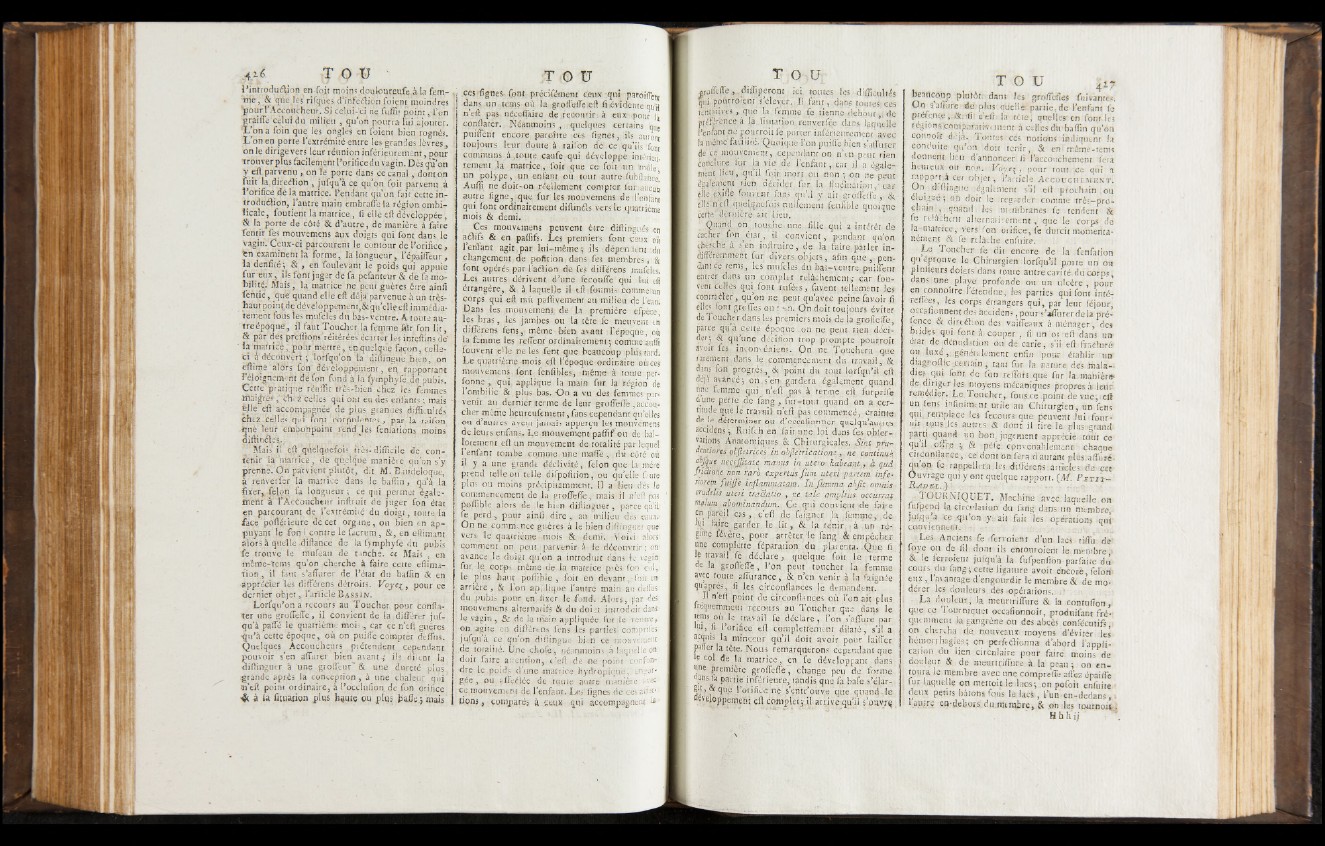 426 TOU
l'introduction en soit moins douloureuse à la fem-
me, & que les risques d'infection soient moindres
pour l'Accoucheur. Si celui-ci ne suffit point, l'on
graisse celui du milieu, qu'on pourra lui ajouter.
L'on a soin que les ongles en soient bien rognés.
L'on en porte l'extrémité entre les grandes lèvres,
on le dirige vers leur réunion inférieurement, pour
trouver plus facilement l'orifice du vagin. Dès qu'on
y est parvenu, on le porte dans ce canal, dont on
suit la direction, jusqu'à ce qu'on soit parvenu à
l'orifice de la matrice. Pendant qu'on fait cette in-
troduction, l'autre main embrasse la région ombi-
licale, soutient la matrice, si elle est développée,
& la porte de côté & d'autre, de manière à faire
sentir ses mouvemens aux doigts qui sont dans le
vagin. Ceux-ci parcourent le contour de l'orifice,
en examinent la forme, la longueur, l'épaisseur,
la densité; &, en soulevant le poids qui appuie
sur eux, ils font juger de sa pesanteur & de sa mo-
bilité. Mais, la matrice ne peut guères être ainsi
sentie, que quand elle est déjà parvenue à un très-
haut point de développement, & qu'elle est immédia-
tement sous les muscles du bas-ventre. A toute au-
tre époque, il faut Toucher la femme sur son lit,
& par des pressions réitérées écarter les intestins de
la matrice, pour mettre, en quelque façon, celle-
ci à découvert; lorsqu'on la distingue bien, on
estime alors son développement, en rapportant
l'éloignement de son fond à la symphyse de pubis.
Cette pratique réussit très-bien chez les femmes
maigres, chez celles qui ont eu des enfants; mais
elle est accompagnée de plus grandes difficultés
chez celles qui sont corpulentes, par la raison
que leur embonpoint rend les sensations moins
distinctes.
Mais il est quelquefois très-difficile de con-
tenir la matrice, de quelque manière qu'on s'y
prenne. On parvient plutôt, dit M. Baudeloque,
à renverser la matrice dans le bassin, qu'à la
fixer, selon sa longueur; ce qui permet égale-
ment à l'Accoucheur instruit de juger son état
en parcourant de l'extrémité du doigt, toute la
face postérieure de cet organe, ou bien en ap-
puyant le fond contre le sacrum, &, en estimant
alors à quelle distance de la symphyse du pubis
se trouve le museau de tanche. Mais, en
même-tems qu'on cherche à faire cette estima-
tion, il faut s'assurer de l'état du bassin & en
apprécier les différens détroits. Voyez, pour ce
dernier objet, l'article BASSIN.
Lorsqu'on a recours au Toucher pour consta-
ter une grossesse, il convient de la différer jus-
qu'à passé le quatrième mois, car ce n'est guères
qu'à cette époque, où on puisse compter dessus.
Quelques Accoucheurs prétendent cependant
pouvoir s'en assurer bien avant; ils disent la
distinguer à une grosseur & une dureté plus
grande après la conception, à une chaleur qui
n'est point ordinaire, à l'occlusion de son orifice
& à sa situation plus haute ou plus basse; mais
TOU
ces signes sont précisément ceux qui paroissent
dans un tems où la grossesse est si évidente qu'il
n'est pas nécessaire de recourir à eux pour la
constater. Néanmoins, quelques certains que
puissent encore paroître ces signes, ils auront
toujours leur doute à raison de ce qu'ils sont
communs à toute cause qui développe intérieu-
rement la matrice, soit que ce soit un môle,
un polype, un enfant ou tout autre substance.
Aussi ne doit-on réellement compter sur aucun
autre signe, que sur les mouvemens de l'enfant
qui sont ordinairement distincts vers le quatrième
mois & demi.
Ces mouvemens peuvent être distingués en
actifs & en passifs. Les premiers sont ceux où
l'enfant agit par lui-même; ils dépendent du
changement de position dans ses membres, &
sont opérés par l'action de ses différens muscles.
Les autres dérivent d'une secousse qui lui est
étrangère, & à laquelle il est soumis comme un
corps qui est mu passivement au milieu de l'eau.
Dans les mouvemens de la première espèce,
les bras, les jambes ou la tête se meuvent en
différens sens, même bien avant l'époque, où
la femme les ressent ordinairement; comme aussi
souvent elle ne les sent que beaucoup plus tard.
Le quatrième mois est l'époque ordinaire où ces
mouvemens sont sensibles, même à toute per-
sonne, qui applique la main sur la région de
l'ombilic & plus bas. On a vu des femmes par-
venir au dernier terme de leur grossesse, accou-
cher même heureusement, sans cependant qu'elles
ou d'autres ayent jamais apperçu les mouvemens
de leurs enfans. Le mouvement passif ou de bal-
lotement est un mouvement de totalité par lequel
l'enfant tombe comme une masse, du côté où
il y a une grande déclivité, selon que la mère
prend telle ou telle disposition, ou qu'elle saute
plus ou moins précipitamment. Il a lieu dès le
commencement de la grossesse, mais il n'est pas
possible alors de le bien distinguer, parce qu'il
se perd, pour ainsi dire, au milieu des eaux.
On ne commence guères à le bien distinguer que
vers le quatrième mois & demi. Voici alors
comment on peut parvenir à le découvrir: on
avance le doigt qu'on a introduit dans le vagin
sur le corps même de la matrice près son col,
le plus haut possible, soit en devant, soit en
arrière, & l'on applique l'autre main au-dessus
du pubis pour en fixer le fond. Alors, par des
mouvemens alternatifs & du doigt introduit dans
le vagin, & de la main appliquée sur le ventre,
on agite en différens sens les parties comprises
jusqu'à ce qu'on distingue bien ce mouvement
de totalité. Une chose, néanmoins à laquelle on
doit faire attention, c'est de ne point confon-
dre le poids d'une matrice hydropique, engor-
gée, ou affectée de toute autre manière avec
ce mouvement de l'enfant. Les signes de
tions, comparés à ceux qui accompagnent la
TOU
grossesse, dissiperont ici toutes les difficultés
qui pourroient s'élever. Il faut, dans toutes ces
tentatives, que la femme se tienne debout, de
préférence à la situation renversée dans laquelle
l'enfant ne pourroit se porter inférieurement avec
la même facilité. Quoique l'on puisse bien s'assurer
de ce mouvement, cependant on n'en peut rien
conclure sur la vie de l'enfant, car il a égale-
ment lieu, qu'il soit mort ou non; on ne peut
également rien décider sur la fluctuation, car
elle existe souvent sans qu'il y ait grossesse, &
elle n'est quelquefois nullement sensible quoique
cette dernière ait lieu.
Quand on touche une fille qui a intérêt de
cacher son état, il convient, pendant qu'on
cherche à s'en instruire, de la faire parler in-
différemment sur divers objets, afin que, pen-
dant ce tems, les muscles du bas-ventre puissent
entrer dans un complet relâchement; car sou-
vent celles qui sont rusées, savent tellement les
contracter, qu'on ne peut qu'avec peine savoir si
elles sont grosses ou non. On doit toujours éviter
de Toucher dans les premiers mois de la grossesse,
parce qu'à cette époque on ne peut rien déci-
der; & qu'une décision trop prompte pourroit
avoir ses inconvéniens. On ne Touchera que
rarement dans le commencement du travail, &
dans son progrès, & point du tout lorsqu'il est
déjà avancé; on s'en gardera également quand
une femme qui n'est pas à terme est surprise
d'une perte de sang, sur-tout quand on a cer-
titude que le travail n'est pas commencé, crainte
de le déterminer ou d'occasionner quelqu'autres
accidens; Ruisch en fait une loi dans ses obser-
vations Anatomiques & Chirurgicales. Sint pru-
dentiores obstetrices in obstetricatione, ne continuò
absque necessitate manus in utero habeant, à quo
frictione non rarò expertus sum uteri partem infe-
riorem fuisse inflammatam. In summa absit omnis
crudelis uteri tractatio, ne tale amplius occurrat
malum abominandum. Ce qui convient de faire
en pareil cas, c'est de saigner la femme, de
lui faire garder le lit, & la tenir à un ré-
gime sévère, pour arrêter le sang & empêcher
une complette séparation du placenta. Que si
le travail se déclare, quelque soit le terme
de la grossesse, l'on peut toucher la femme
avec toute assurance, & n'en venir à la saignée
qu'après, si les circonstances le demandent.
Il n'est point de circonstances où l'on ait plus
fréquemment recours au Toucher que dans le
tems où le travail se déclare, l'on s'assure par
lui, si l'orifice est complettement dilaté, s'il a
acquis la minceur qu'il doit avoir pour laisser
passer la tête. Nous remarquerons cependant que
le col de la matrice, en se développant dans
une première grossesse, change peu de forme
dans la partie inférieure, tandis que sa base s'élar-
git, & que l'orifice ne s'entr'ouve que quand le
développement est complet; il arrive qu'il s'ouvre
TOU 427
beaucoup plutôt dans les grossesses suivantes.
On s'assure de plus quelle partie de l'enfant se
présente, & si c'est la tête, quelles en sont les
régions comparativement à celles du bassin qu'on
connoît déjà. Toutes ces notions indiquent la
conduite qu'on doit tenir, & en même-tems
donnent lieu d'annoncer si l'accouchement sera
heureux ou non. Voyez, pour tout ce qui a
rapport à cet objet, l'article ACCOUCHEMENT.
On distingue également s'il est prochain ou
éloigné; on doit le regarder comme très-pro-
chain, quand les membranes se tendent &
se relâchent alternativement, que le corps de
la matrice, vers son orifice, se durcit momenta-
nément & se relâche ensuite.
Le Toucher se dit encore de la sensation
qu'éprouve le Chirurgien lorsqu'il porte un ou
plusieurs doigts dans toute autre cavité du corps,
dans une playe profonde ou un ulcère, pour
en connoître l'étendue, les parties qui sont inté-
ressées, les corps étrangers qui, par leur séjour,
occasionnent des accidens, pour s'assurer de la pré-
sence & direction des vaisseaux à ménager, des
brides qui sont à couper, si un os est dans un
état de dénudation ou de carie, s'il est fracturé
ou luxé, généralement enfin pour établir un
diagnostic certain, tant sur la nature des mala-
dies qui sont de son ressort que sur la manière
de diriger les moyens mécaniques propres à leur
remédier. Le Toucher, sous ce point de vue, est
un sens infiniment utile au Chirurgien, un sens
qui remplace les secours que peuvent lui four-
nir tous les autres & dont il tire le plus grand
parti quand un bon jugement apprécie tout ce
qu'il offre, & pèse convenablement chaque
circonstance, ce dont on sera d'autant plus assuré
qu'on se rappellera les différens articles de cet
Ouvrage qui y ont quelque rapport. (M. PETIT-
RADEL.)
TOURNIQUET. Machine avec laquelle on
suspend la circulation du sang dans un membre,
jusqu'à ce qu'on y ait fait les opérations qui
conviennent.
Les Anciens se servoient d'un lacs tissu de
soye ou de fil dont ils entouroient le membre,
& le serroient jusqu'à la suspension parfaite du
cours du sang; cette ligature avoit encore, selon
eux, l'avantage d'engourdir le membre & de mo-
dérer les douleurs des opérations.
La douleur, la meurtrissure & la contusion,
que ce Tourniquet occasionnoit, produisant fré-
quemment la gangrène ou des abcès consécutifs;
on chercha de nouveaux moyens d'éviter les
hémorrhagies; on perfectionna d'abord l'appli-
cation du lien circulaire pour faire moins de
douleur & de meurtrissure à la peau; on en-
toura le membre avec une compresse assez épaisse
sur laquelle on mettoit le lacs; on posoit ensuite
deux petits bâtons sous le lacs, l'un en-dedans,
l'autre en-dehors du membre, & on les tournoit
Hhh ij